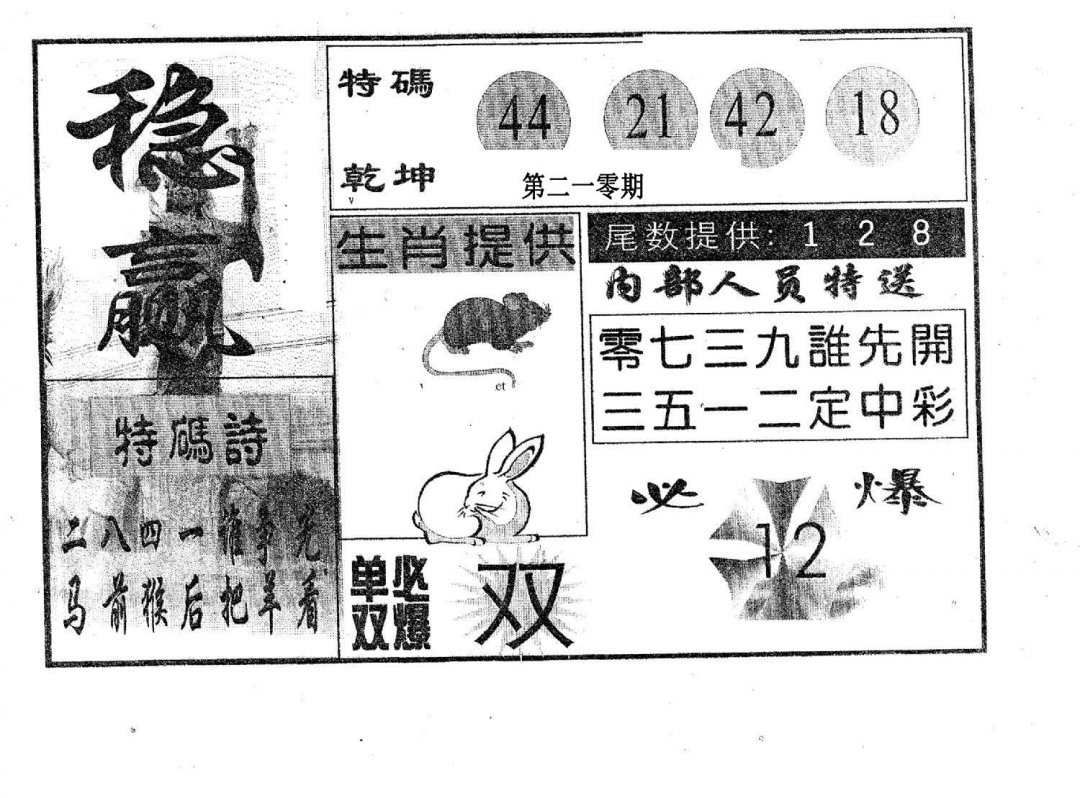 稳赢
特碼
44 21 42 18
乾坤
第二一零期
生肖提供
尾数提供: 1 2 8
内部人员特送
零七三九誰先開
三五一二定中彩
特碼詩
二八四一誰爭先
马前猴后把羊看
必爆
12
单双必爆
双